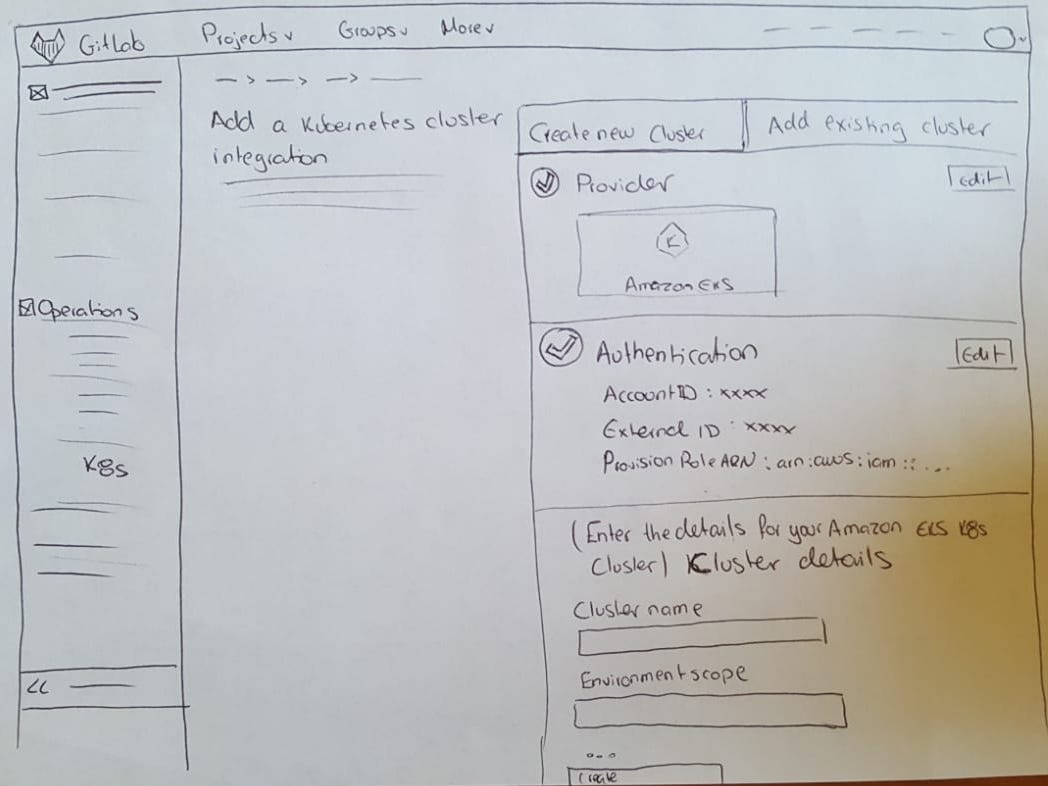 GitLab Projects Groups More
Add a Kubernetes cluster
integration
Operations
K8s
Create new Cluster Add existing cluster
Provider Edit
K
Amazon EKS
Authentication Edit
Account ID : xxxx
External ID : xxxx
Provision Role ARN : arn:aws:iam :: ...
(Enter the details for your Amazon EKS K8s
Cluster) Cluster details
Cluster name
Environment scope
...
Create